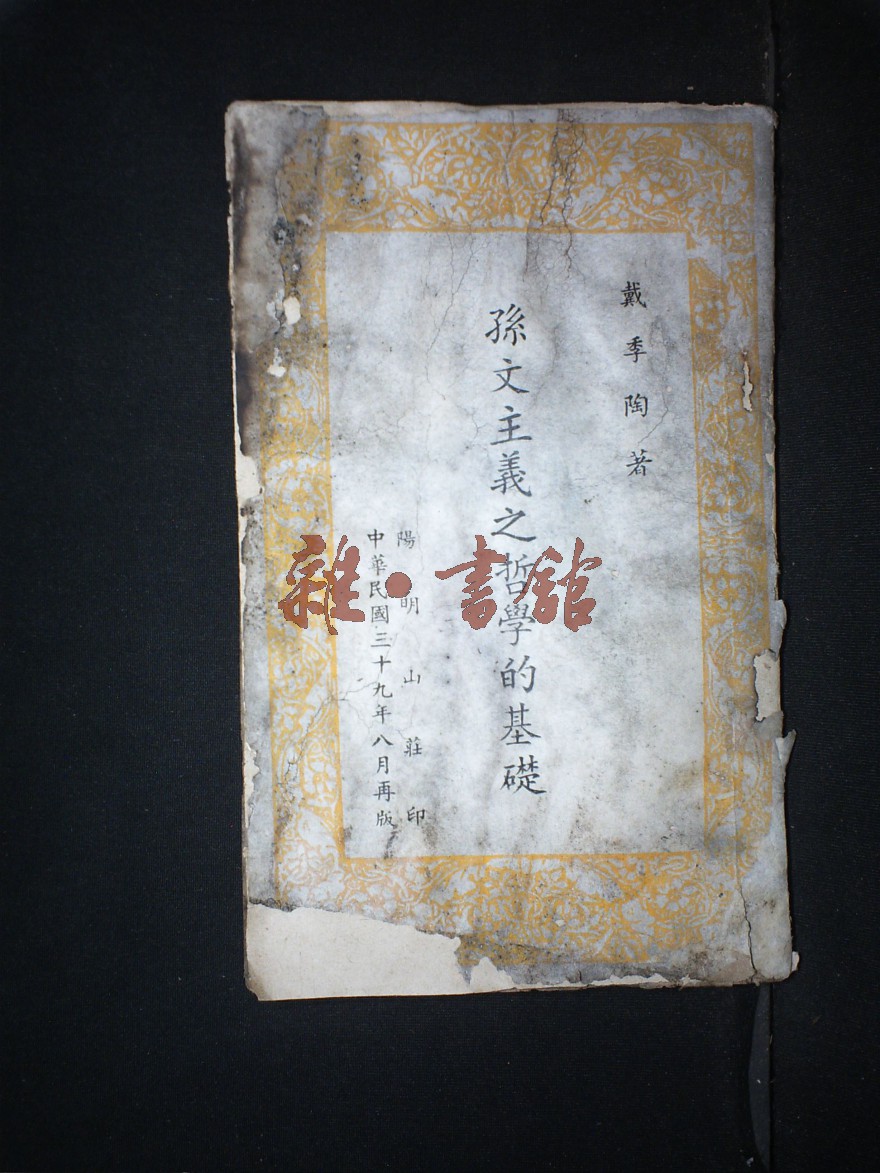 戴季陶著
孫文主義之哲學的基礎
陽明山莊印
中華民國三十九年八月再版
雜·書館